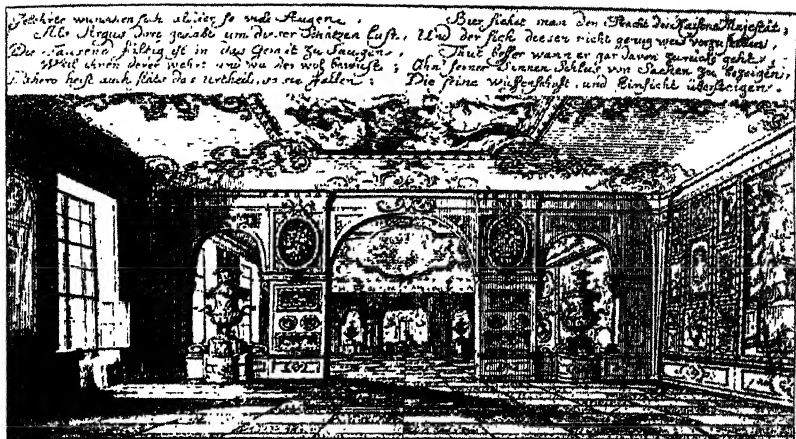 wünschen sich allhier so viele Augen,
Als Argus dort gehabt um dieser Schätzen Lust,
Die Tausend faltig ist in das Gemüt zu Saugen,
Weil ihnen derer wehrt und wa der wol bewust;
heist auch stäts das Urtheil, so sie fällen:
Hier siehet man den Pracht der Kaisers Majestät;
Und der sich dieser nicht genug weis vorzustellen,
Thut besser wann er gar davon zurück geht,
Ahn seiner Sinnen Schlus von Sachen zu bezeigen,
Die seine wissenschaft und Einsicht übersteigen.